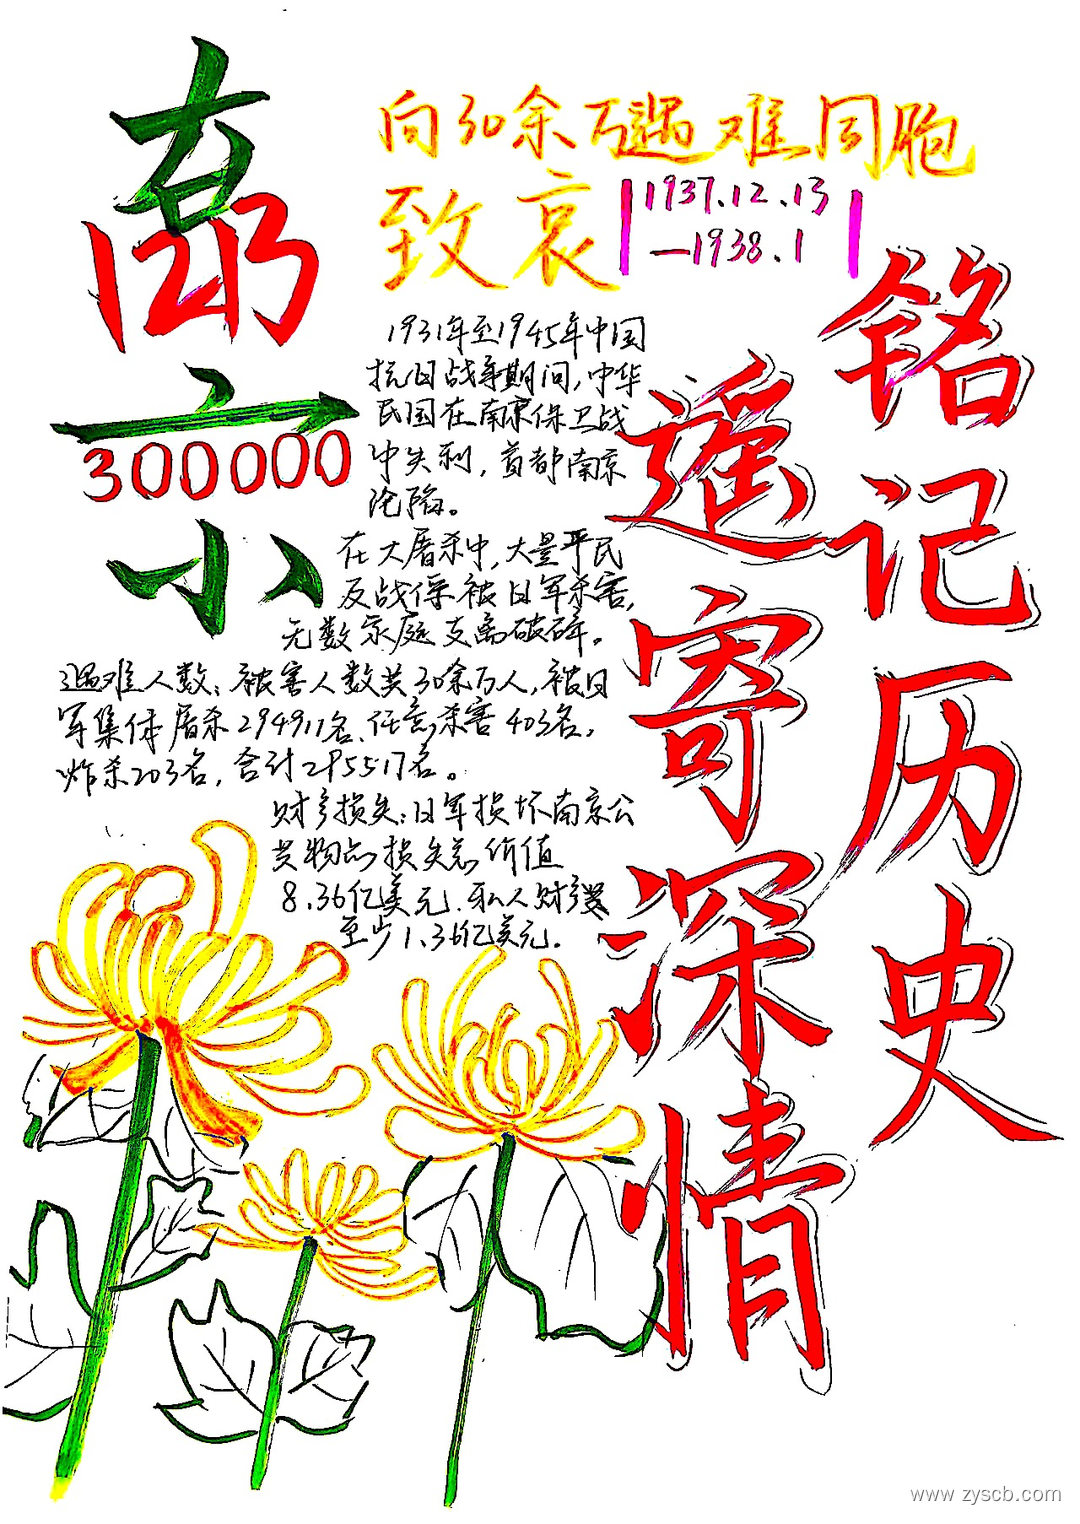 南
1213
京
300000
向30余万遇难同胞
致哀
1937.12.13
—1938.1
铭记历史
遥寄深情
1931年至1945年中国
抗日战争期间,中华
民国在南京保卫战
中失利,首都南京
沦陷。
在大屠杀中,大量平民
及战俘被日军杀害,
无数家庭支离破碎。
遇难人数:被害人数共30余万人,被日
军集体屠杀294911名、任意杀害403名,
炸杀203名,合计295517名。
财产损失:日军损坏南京公
共物品损失总价值
8.36亿美元.私人财产
至少1.36亿美元.
www.zyscb.com